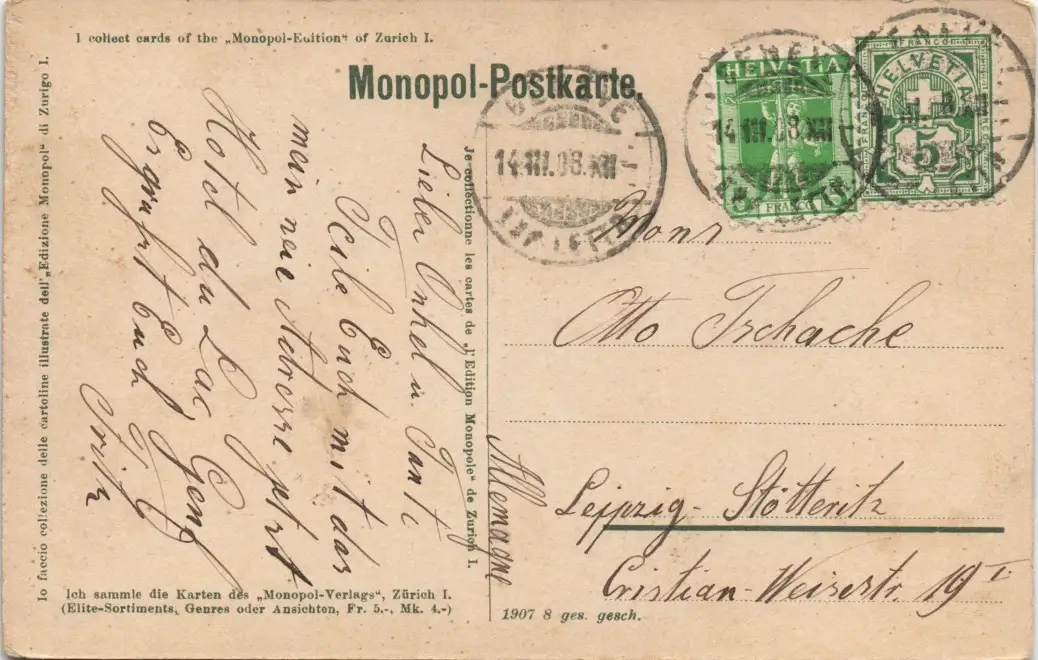 1 collect cards of the „Monopol-Edition“ of Zurich I.
Monopol-Postkarte.
Io faccio collezione delle cartoline illustrate dell'„Edizione Monopol“ di Zurigo I.
Je collectionne les cartes de „l'Edition Monopole“ de Zurich I.
Lieber Onkel u. Tante
Teile Euch mit das
mein neie Adresse jetzt
Hotel du Lac Genf
Es grüsst Euch
Fritz
GENÈVE
14.III.08.XII
EXP. LETTR.
HELVETIA
5 5
FRANCO
GENÈVE
14.III.08.XII
FRANCO
HELVETIA
5
Mons
Otto Tschache
Leipzig-Stötteritz
Cristian-Weisestr. 19 I.
Allemagne
Ich sammle die Karten des „Monopol-Verlags“, Zürich I.
(Elite-Sortiments, Genres oder Ansichten, Fr. 5.-, Mk. 4.-)
1907 8 ges. gesch.